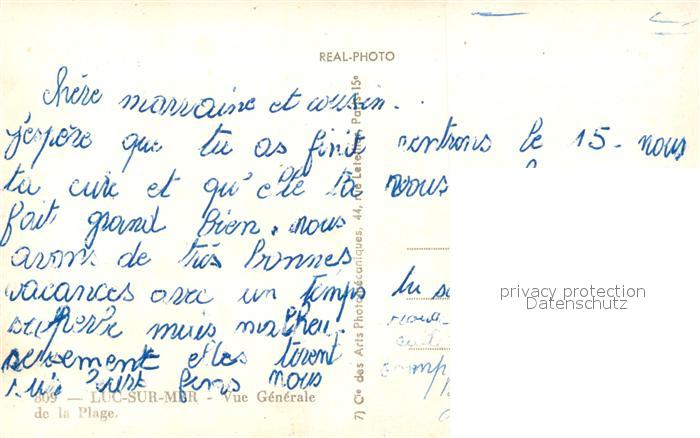 REAL-PHOTO
chère marraine et cousin.
j'espère que tu as finit
ta cure et qu'elle ta
fait grand bien. nous
avons de très bonnes
vacances avec un temps
superbe mais malheu-
reusement elles tirent
fins nous
rentrons le 15. nous
vous
tu
7) Cie des Arts Photomécaniques, 44, rue Letellier, Paris-15e
809 — LUC-SUR-MER - Vue Générale
de la Plage.
privacy protection
Datenschutz